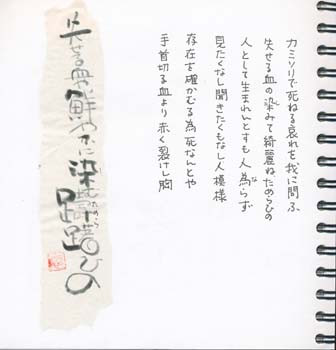 カミソリで死ねる哀れを我に問ふ
失せる血の染みて綺麗ねためらひの
人として生まれんとすも人為らず
な
見たくなし聞きたくもなし人模様
存在を確かむる為死なんとや
手首切る血より赤く裂けし胸
失せる血の鮮やかに染む躊躇ひの
ためら